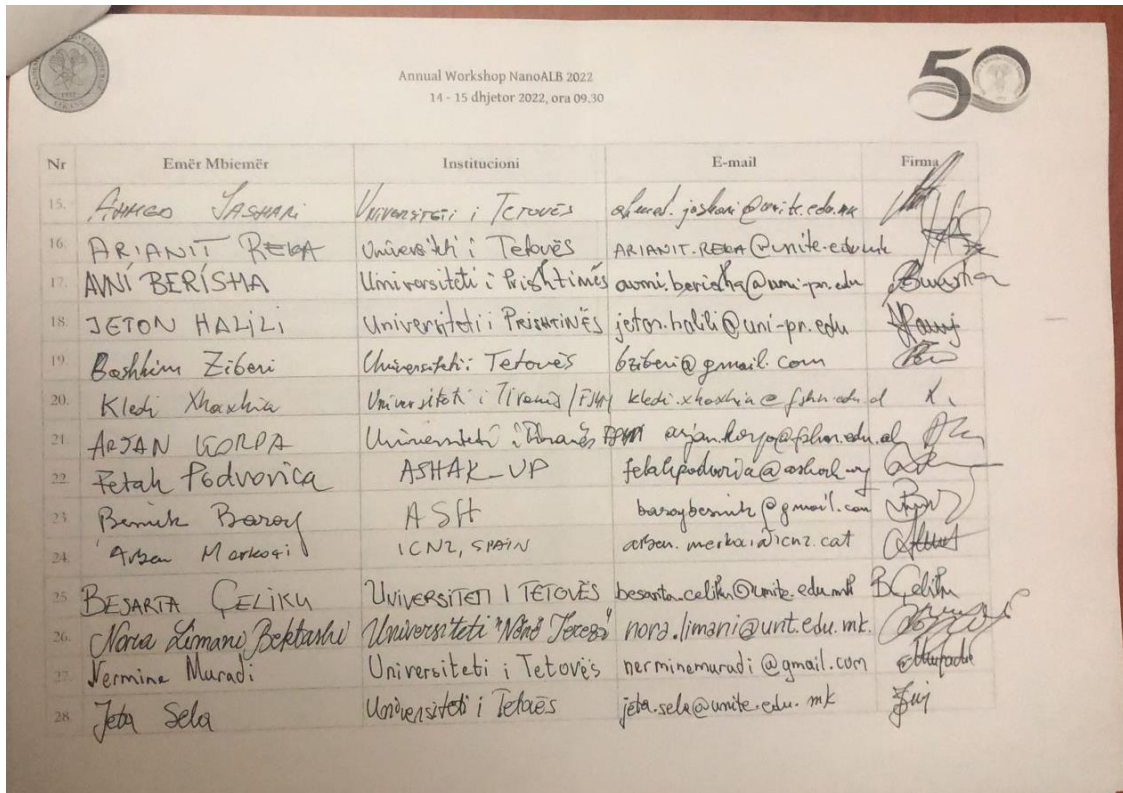 Annual Workshop NanoALB 2022
14 - 15 dhjetor 2022, ora 09.30
50
Nr Emër Mbiemër Institucioni E-mail Firma
15. AHMED JASHARI Universiteti i Tetovës ahmed.jashari@unite.edu.mk
16. ARIANIT REKA Universiteti i Tetovës ARIANIT.REKA@unite.edu.mk
17. AVNI BERISHA Universiteti i Prishtinës avni.berisha@uni-pr.edu
18. JETON HALILI Universiteti i PRISHTINËS jeton.halili@uni-pr.edu
19. Bashkim Ziberi Universiteti i Tetovës bziberi@gmail.com
20. Kledi Xhaxhia Universiteti i Tiranës/FSHN kledi.xhaxhia@fshn.edu.al
21. ARJAN KORPA Universiteti i Tiranës arjan.korpa@fshn.edu.al
22 Fetah Podvorica ASHAK_UP
23 Besnik Baraj ASH
24. Arben Merkoçi ICN2, SPAIN arben.merkoci@icn2.cat
25 BESARTA ÇELIKU UNIVERSITETI I TETOVËS besarta.celiku@unite.edu.mk B Çeliku
26. Nora Limani Bektashi Universiteti "Nënë Tereza" nora.limani@unt.edu.mk.
27. Nermine Muradi Universiteti i Tetovës nerminemuradi@gmail.com
28. Jeta Sela Universiteti i Tetovës jeta.sela@unite.edu.mk